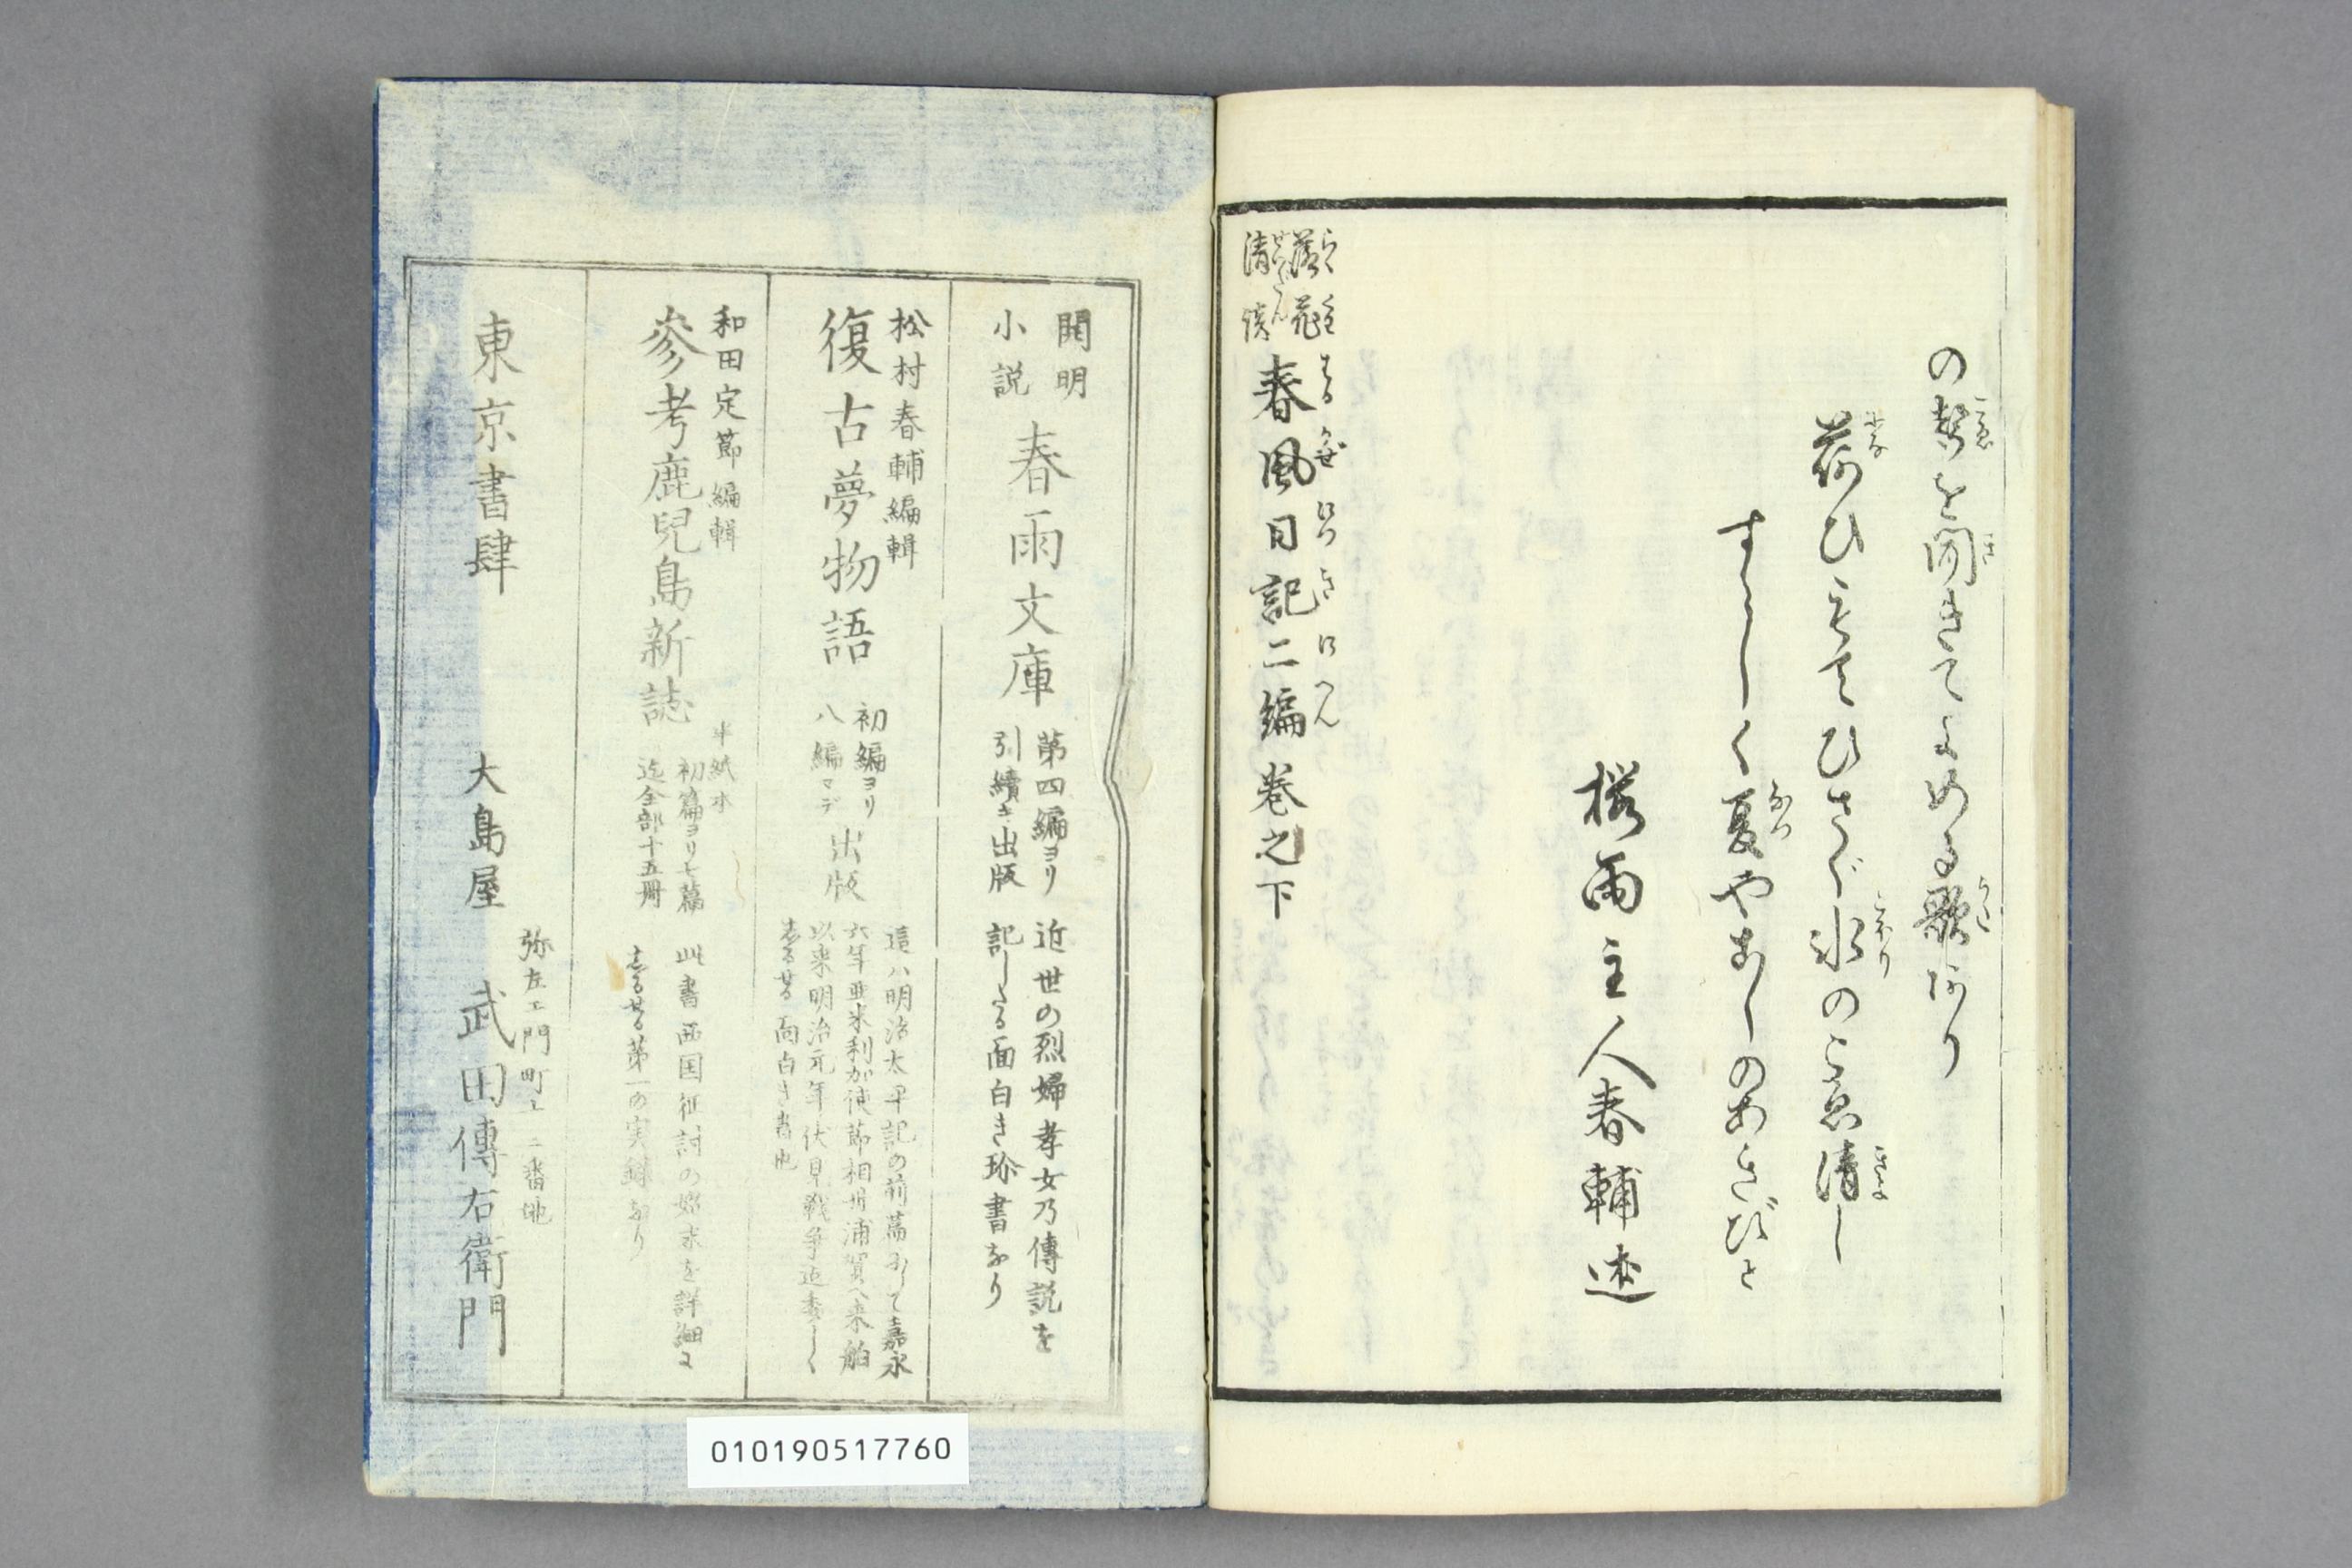 の声を聞きてよめる歌あり
荷ひもてひさぐ氷のこゑ清し
すゞしく夏やあしのあきびと
桜雨主人春輔述
落花
清談
春風日記二編巻之下
開明
小説
春雨文庫
第四編ヨリ
引續き出版
近世の烈婦孝女乃傳説を
記したる面白き珍書なり
松村春輔編輯
復古夢物語
初編ヨリ
八編マデ
出版
這ハ明治太平記の前篇にして嘉永
六年亜米利加使節相州浦賀へ来舶
以来明治元年伏見戦争迄委しく
しるせる面白き書也
和田定節編輯
参考鹿児島新誌
半紙本
初篇ヨリ七篇
迄全部十五冊
此書西国征討の始末を詳細に
しるせる第一の実録なり
東京書肆
大島屋
弥左エ門町十二番地
武田傳右衛門
010190517760